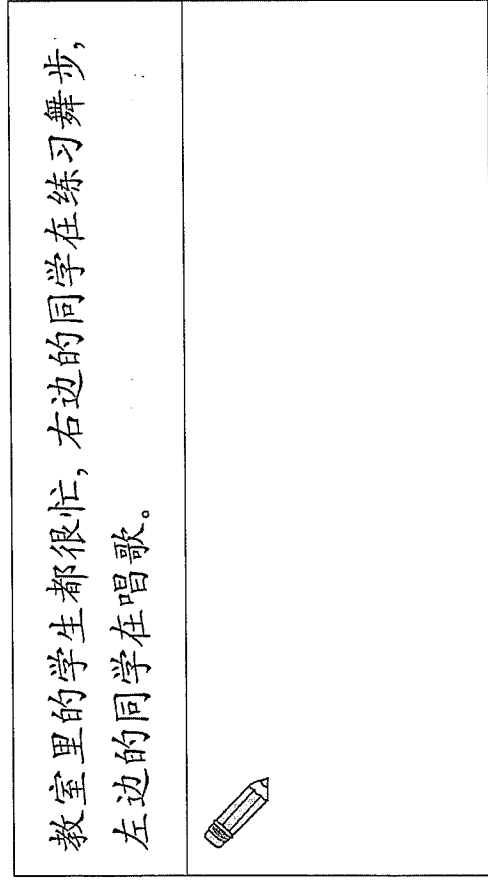 教室里的学生都很忙，右边的同学在练习舞步，
左边的同学在唱歌。